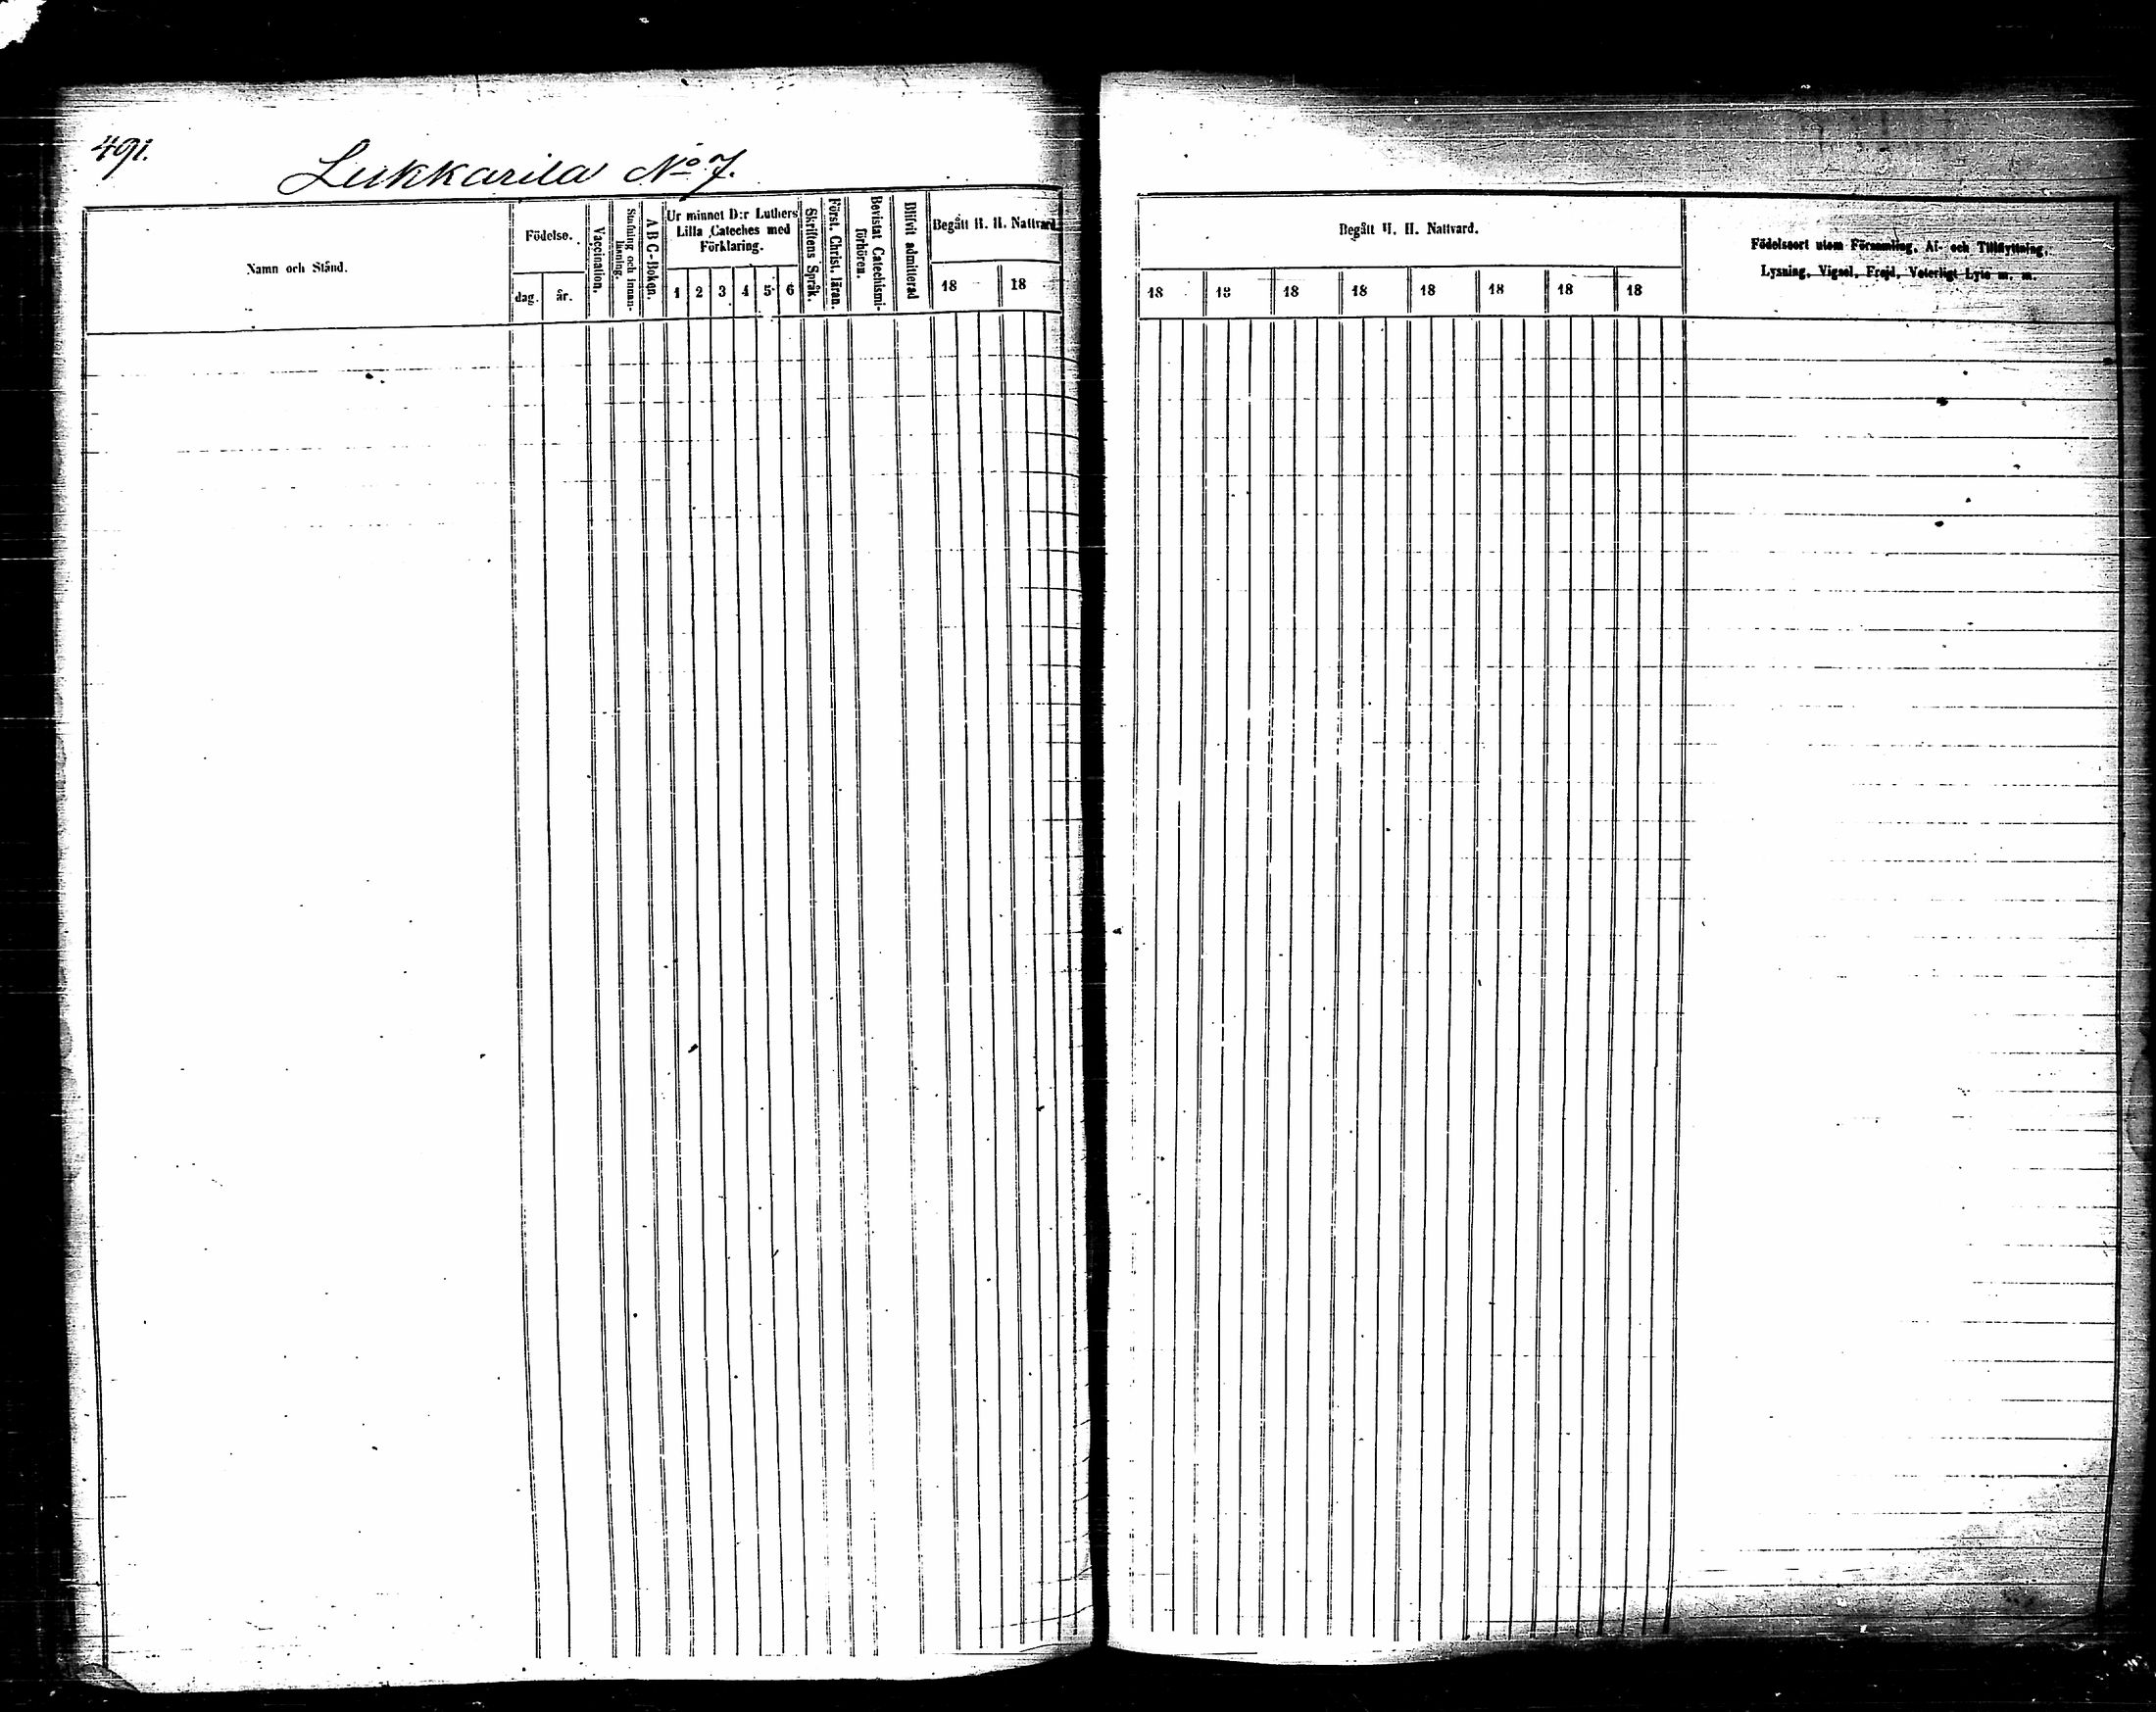 491.
Lukkarila No 7.
Namn och Stånd.
Födelse.
dag.
år.
Vaccination.
Stafning och innan-
läsning.
A B C-Boken.
Ur minnet D:r Luthers
Lilla Cateches med
Förklaring.
1 2 3 4 5 6
Skriftens Språk.
Först. Christ. läran.
Bevistat Catechismi-
förhören.
Blifvit admitterad
Begått H. H. Nattvard.
18 18
Begått H. H. Nattvard.
18 18 18 18 18 18 18 18
Födelseort utom Församling, Af- och Tillflyttning,
Lysning, Vigsel, Frejd, Veterligt Lyte m. m.